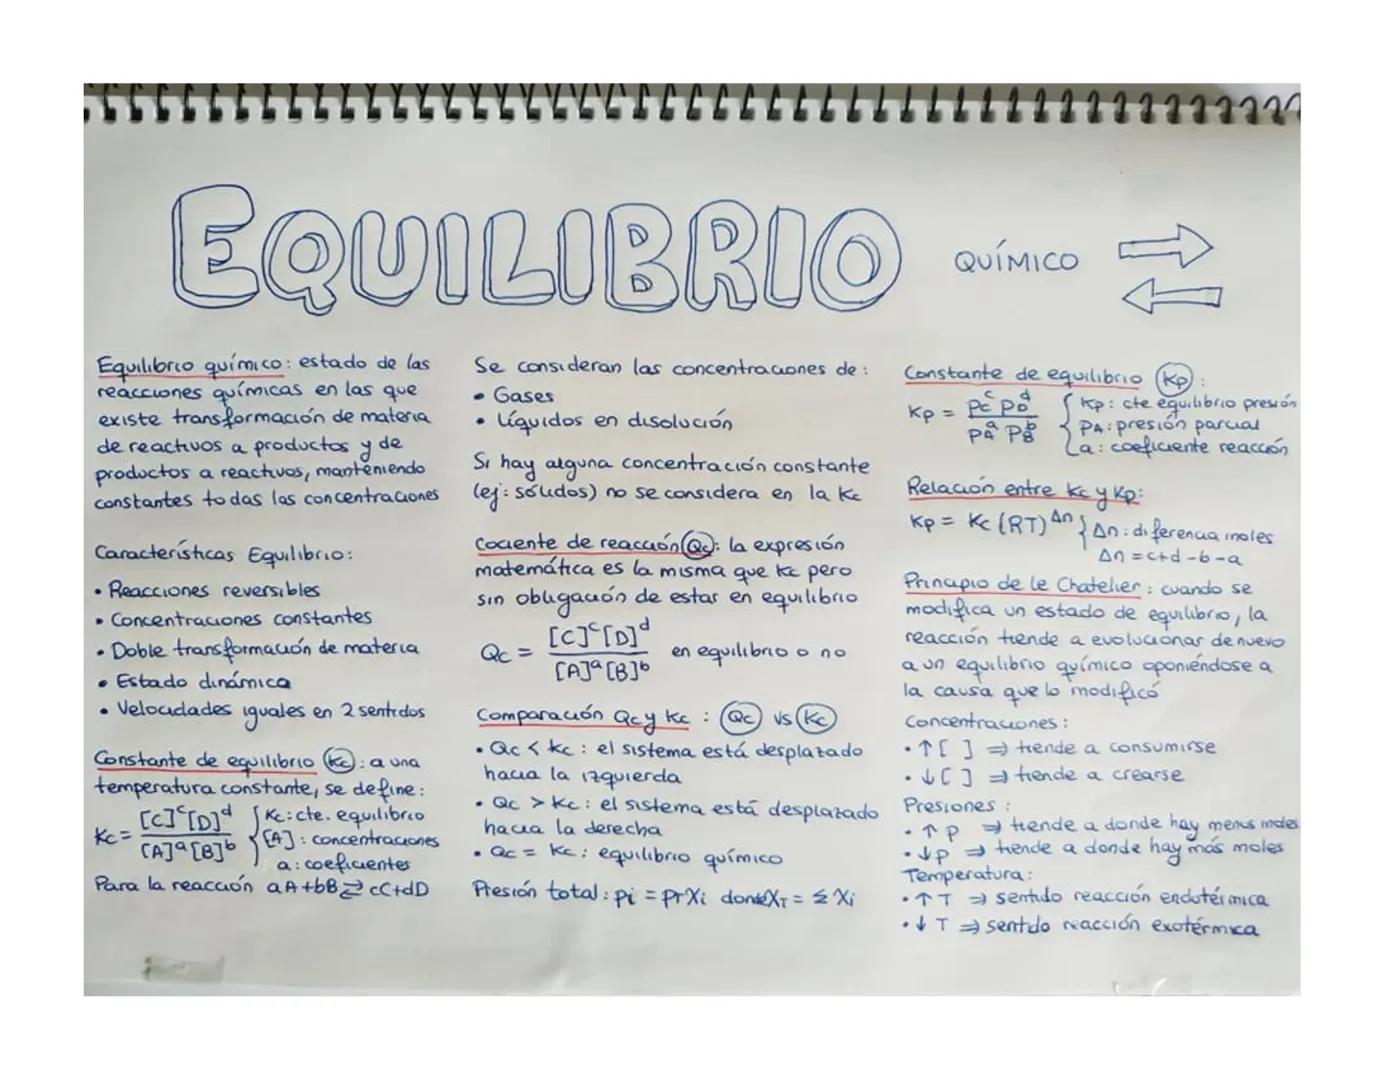 EQUILIBRIO QUÍMICO
Equilibrio químico: estado de las
reacciones químicas en las que
existe transformación de materia
de reactivos a productos y de
productos a reactivos, manteniendo
constantes todas las concentraciones
Características Equilibrio:
• Reacciones reversibles
• Concentraciones constantes
• Doble transformación de materia
• Estado dinámica
• Velocidades iguales en 2 sentidos
Constante de equilibrio (Kc): a una
temperatura constante, se define:
Kc = [C]^c [D]^d / [A]^a [B]^b { Kc: cte. equilibrio
[A]: concentraciones
a: coeficientes
Para la reacción aA+bB ⇄ cC+dD
Se consideran las concentraciones de:
• Gases
• Líquidos en disolución
Si hay alguna concentración constante
(ej: sólidos) no se considera en la Kc
Cociente de reacción (Qc): la expresión
matemática es la misma que Kc pero
sin obligación de estar en equilibrio
Qc = [C]^c [D]^d / [A]^a [B]^b en equilibrio o no
Comparación Qc y Kc : (Qc) vs (Kc)
• Qc < Kc: el sistema está desplazado
hacia la izquierda
• Qc > Kc: el sistema está desplazado
hacia la derecha
• Qc = Kc: equilibrio químico
Presión total: Pi = PT Xi donde XT = Σ Xi
Constante de equilibrio (Kp):
Kp = Pc^c PD^d / PA^a PB^b { Kp: cte equilibrio presión
PA: presión parcial
a: coeficiente reacción
Relación entre Kc y Kp:
Kp = Kc (RT)^Δn { Δn: diferencia moles
Δn = c+d-b-a
Principio de le Chatelier: cuando se
modifica un estado de equilibrio, la
reacción tiende a evolucionar de nuevo
a un equilibrio químico oponiéndose a
la causa que lo modificó
Concentraciones:
• ↑[ ] ⇒ tiende a consumirse
• ↓[ ] ⇒ tiende a crearse
Presiones:
• ↑ P ⇒ tiende a donde hay menos moles
• ↓ P ⇒ tiende a donde hay más moles
Temperatura:
• ↑ T ⇒ sentido reacción endotérmica
• ↓ T ⇒ sentido reacción exotérmica